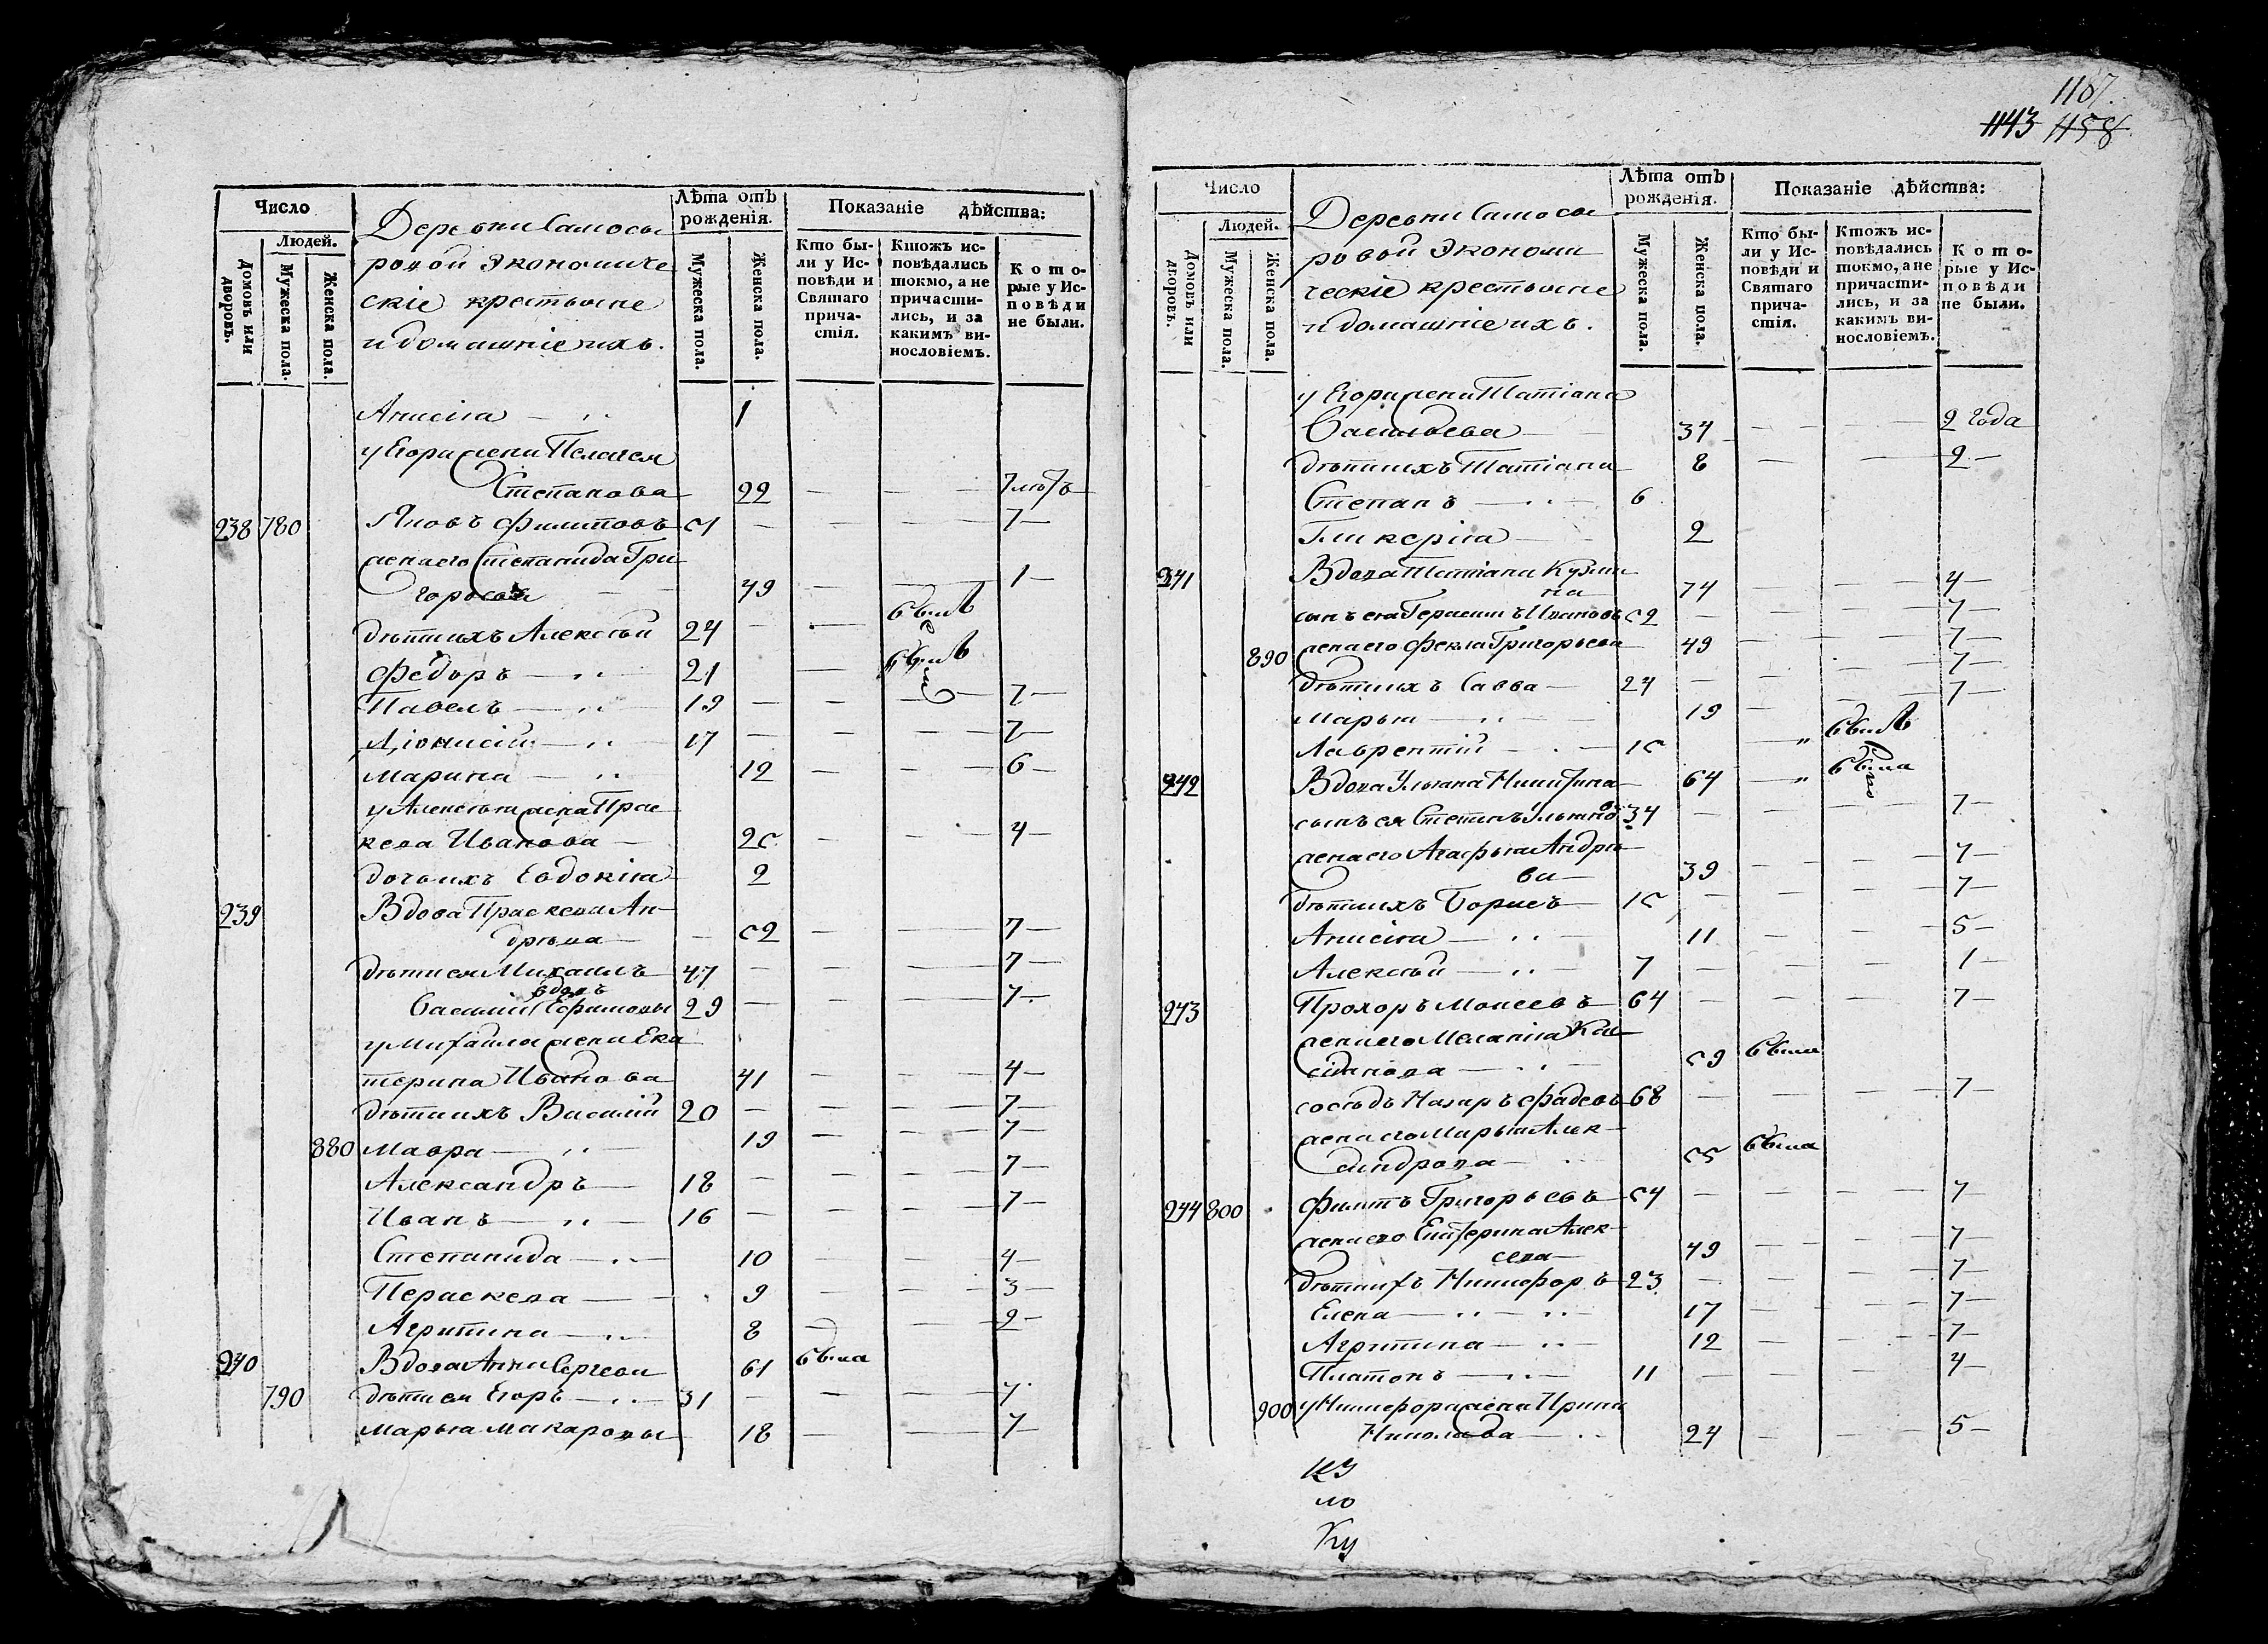 1187.
1143 1158
Число
Людей.
Домовъ или дворовъ.
Мужеска пола.
Женска пола.
Деревни Самосы
ровой Экономиче
скіе крестьяне
и домашніе ихъ.
Лѣта отъ
рожденія.
Мужеска пола.
Женска пола.
Показаніе дѣйства:
Кто бы-
ли у Ис-
повѣди и
Святаго
прича-
стія.
Ктожъ ис-
повѣдались
токмо, а не
причасти-
лись, и за
какимъ ви-
нословіемъ.
Кото-
рые у Ис-
повѣди
не были.
Анисіа — 1
у Егора жена Пелагея
Степанова 22 — — 7 лѣтъ
238 780 Яковъ Филиповъ 51 — — — 7 —
жена его Степанида Гри
горьева 49 — — 1 —
дѣти ихъ Алексѣй 24 — — былъ
Федоръ — 21 — былъ
Павелъ — 19 — — — 7 —
Діонисій — 17 — — — 7 —
Марина — 12 — — — 6 —
у Алексѣя жена Прас
кева Иванова — 25 — — 4 —
дочь ихъ Евдокіа 2
239 Вдова Праскева Ан
дрѣева — 52 — — 7 —
дѣти ея Михаилъ 47 — — — 7 —
вдовъ
Василій Ефимовы 29 — — — 7 —
у Михайла жена Ека
терина Иванова 41 — — 4 —
дѣти ихъ Василій 20 — — — 7 —
880 Мавра — 19 — — 7 —
Александръ — 18 — — — 7 —
Иванъ — 16 — — — 7 —
Степанида — 10 — — 4 —
Пераскева — 9 — — 3 —
Агрипина — 8 — — 2 —
240 Вдова Анна Сергеева 61 была
790 дѣти ея Егоръ — 31 — — — 7
Марья Макаровы 18 — — 7 —
Число
Людей.
Домовъ или дворовъ.
Мужеска пола.
Женска пола.
Деревни Самосы
ровой Экономи
ческіе крестьяне
и домашніе ихъ.
Лѣта отъ
рожденія.
Мужеска пола.
Женска пола.
Показаніе дѣйства:
Кто бы-
ли у Ис-
повѣди и
Святаго
прича-
стія.
Ктожъ ис-
повѣдались
токмо, а не
причасти-
лись, и за
какимъ ви-
нословіемъ.
Кото-
рые у Ис-
повѣди
не были.
у Егора жена Татіана
Васильева — 34 — — — 2 года
дѣти ихъ Татіана 8 — — 2 —
Степанъ — 6
Гликеріа — 2
241 Вдова Татіана Кузми
на 74 — — 4 —
сынъ ея Герасимъ Ивановъ 52 — — — 7 —
890 жена его Фекла Григорьева 49 — — — 7 —
дѣти ихъ Савва — 24 — — — 7 —
Марья — 19 — — 7 —
Лаврентій — 15 — былъ
242 Вдова Ульяна Никитина 64 — была
сынъ ея Степанъ Ульяно 34 — — — 7 —
жена его Агафья Андрѣе
ва — 39 — — — 7 —
дѣти ихъ Борисъ — 15 — — — 7 —
Анисіа — 11 — — — 5 —
Алексѣй — 7 — — — 1 —
243 Прохоръ Моисеевъ 64 — — — 7 —
жена его Меланіа
59 была
сосѣдъ Назаръ Фадеевъ 68 — — — 7 —
жена его Марья Алек
сандрова — 55 была
244 800 Филипъ Григорьевъ 54 — — — 7 —
жена его Екатерина Алек
сева — 49 — — — 7 —
дѣти ихъ Никифоръ 23 — — — 7 —
Елена — 17 — — — 7 —
Агрипина — 12 — — — 7 —
Платонъ — 11 — — — 4 —
900 у Никифора жена Ирина
Николаева — 24 — — — 5 —